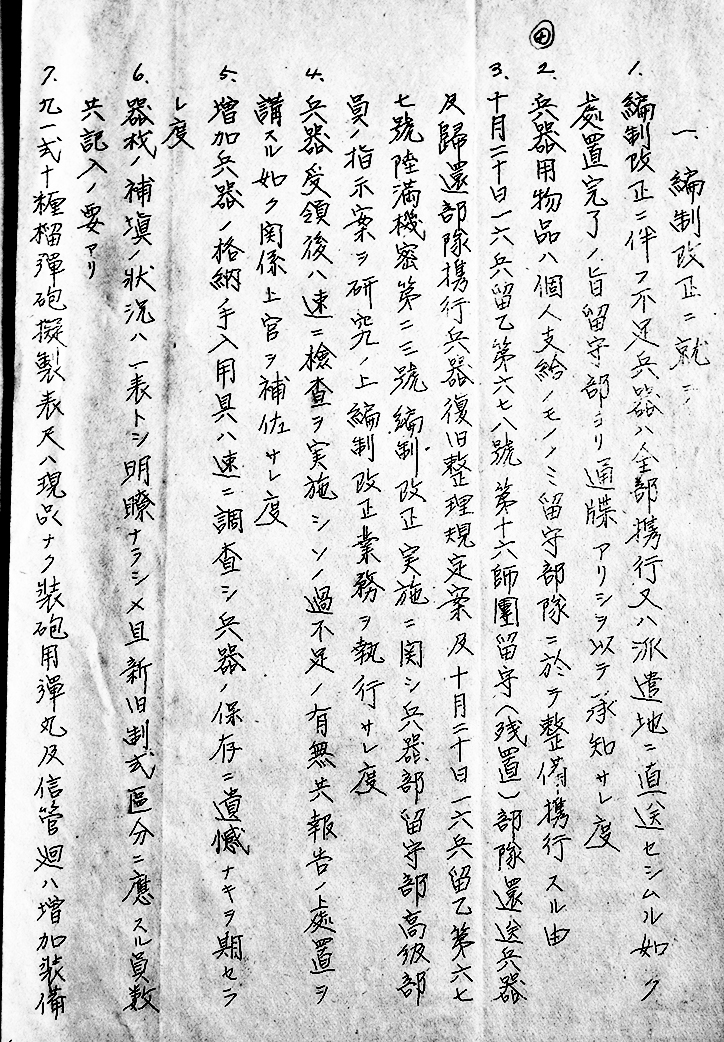 一、編制改正ニ就テ
1. 編制改正ニ伴フ不足兵器ハ全部携行又ハ派遣地ニ直送セシムル如ク
処置完了ノ旨留守部ヨリ通牒アリシヲ以テ承知サレ度
2. 兵器用物品ハ個人支給ノモノノミ留守部隊ニ於テ整備携行スル由
3. 十月二十日一六兵留乙第六七八號第十六師團留守(残置)部隊還送兵器
及歸還部隊携行兵器復旧整理規定案及十月二十日一六兵留乙第六七
七號陸満機密第二三號編制改正実施ニ関シ兵器部留守部高級部
員ノ指示案ヲ研究ノ上編制改正業務ヲ執行サレ度
4. 兵器受領後ハ速ニ檢査ヲ実施シソノ過不足ノ有無共報告ノ上處置ヲ
講スル如ク関係上官ヲ補佐サレ度
5. 増加兵器ノ格納手入用具ハ速ニ調査シ兵器ノ保存ニ遺憾ナキヲ期セラ
レ度
6. 器材ノ補填ノ状況ハ一表トシ明瞭ナラシメ且新旧制式區分ニ應スル員数
共記入ノ要アリ
7. 九一式十糎榴彈砲擬製表尺ハ現品ナク装砲用彈丸及信管廻ハ増加装備